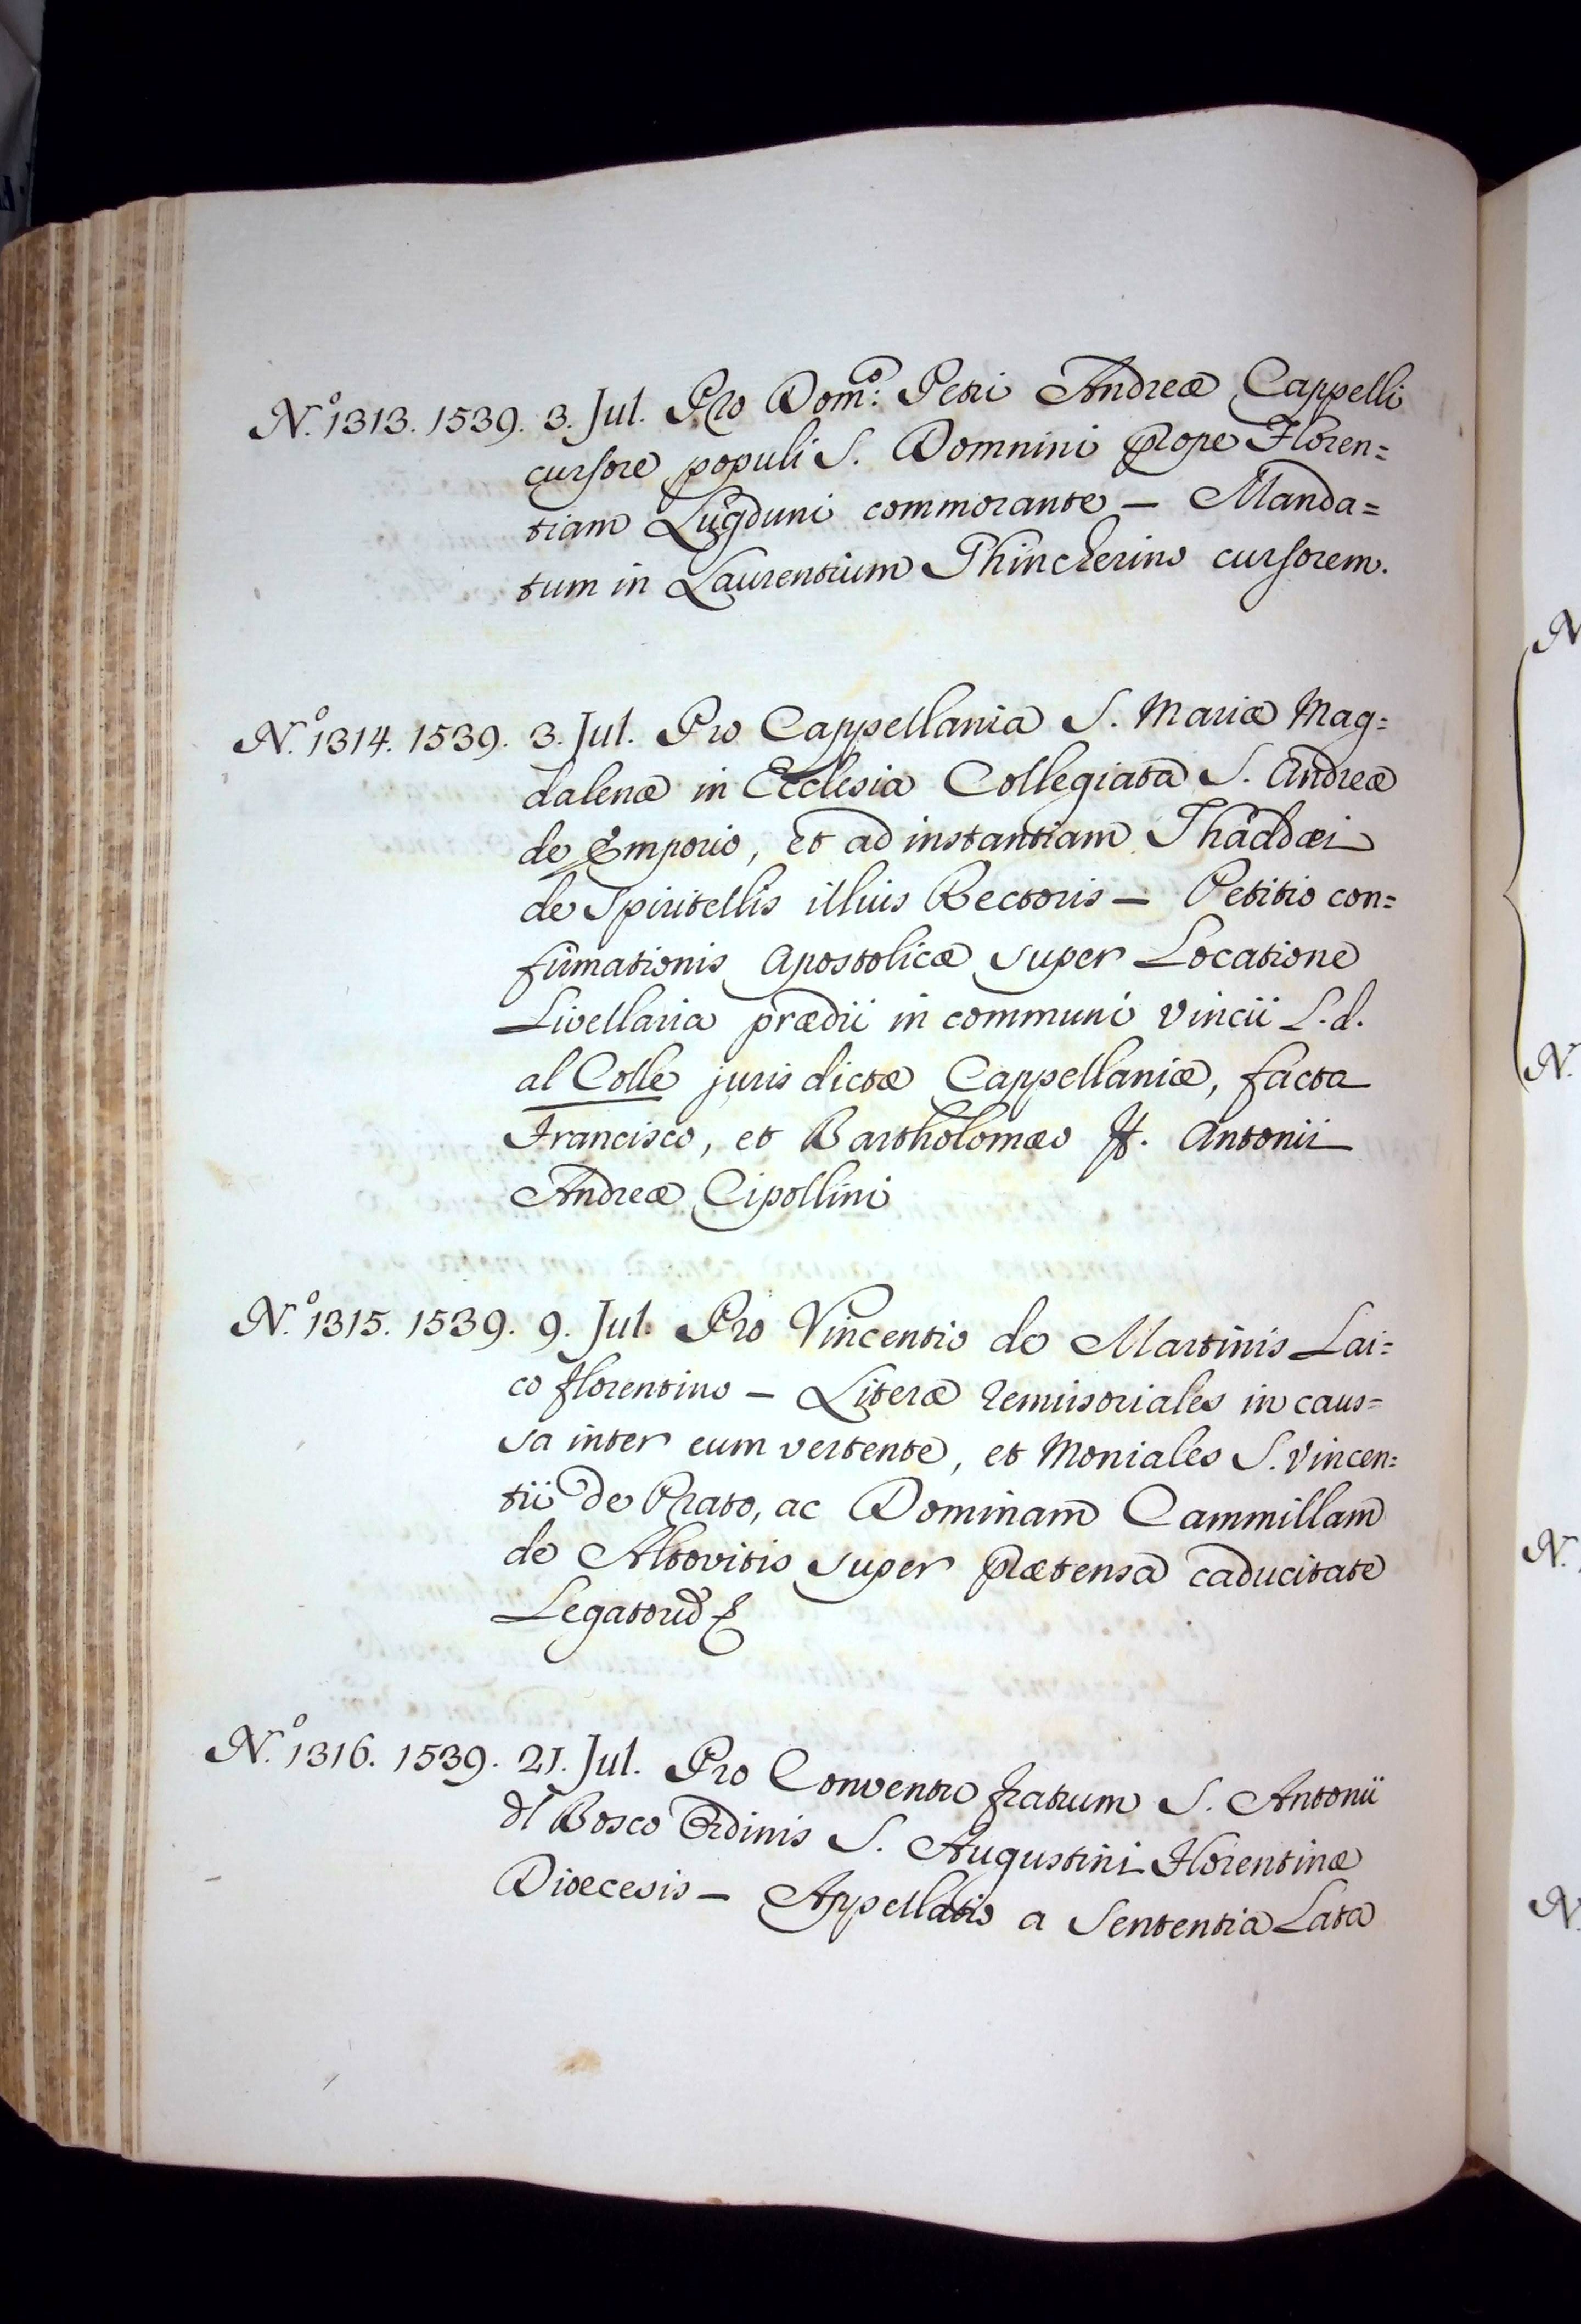 N.º 1313. 1539. 3. Jul. Pro Domº: Petri Andreæ Cappelli
cursore populi S. Domnini prope Floren=
tiam Lugduni commorante — Manda=
tum in Laurentium Phincherino cursorem.
N.º 1314. 1539. 3. Jul. Pro Cappellania S. Mariæ Mag=
dalenæ in Ecclesia Collegiata S. Andreæ
de Emporio, et ad instantiam Thaddæi
de Spiritellis illius Rectoris — Petitio con=
firmationis Apostolicæ super Locatione
Livellaria prædii in communi Vincii L.d.
al Colle juris dictæ Cappellaniæ, facta
Francisco, et Bartholomæo ff. Antonii
Andreæ Cipollini
N.º 1315. 1539. 9. Jul. Pro Vincentio de Martinis Lai=
co florentino — Literæ remisoriales in caus=
sa inter eum vertente, et Moniales S. Vincen=
tii de Prato, ac Dominam Cammillam
de Altovitis super prætensa caducitate
N.º 1316. 1539. 21. Jul. Pro Conventu fratrum S. Antonii
dl Bosco Ordinis S. Augustini Florentinæ
Dioecesis — Appellatio a Sententia Lata
N
N.
N.
N.